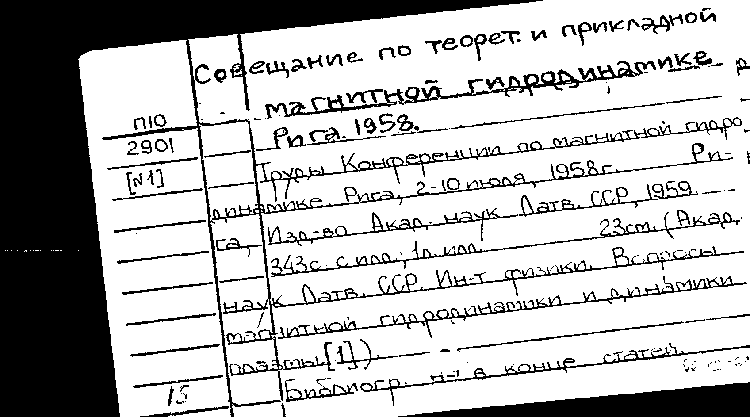 Совещание по теорет. и прикладной
магнитной гидродинамике
Рига. 1958.
П10
2901
[N1]
Труды Конференции по магнитной гидро
динамике. Рига, 2-10 июля, 1958г. Ри-
га, Изд-во Акад. наук Латв. ССР, 1959.
343с. с илл.; 1л илл. 23см. (Акад.
наук Латв. ССР. Ин-т физики. Вопросы
магнитной гидродинамики и динамики
плазмы[1]).
Библиогр. в конце статей.
15